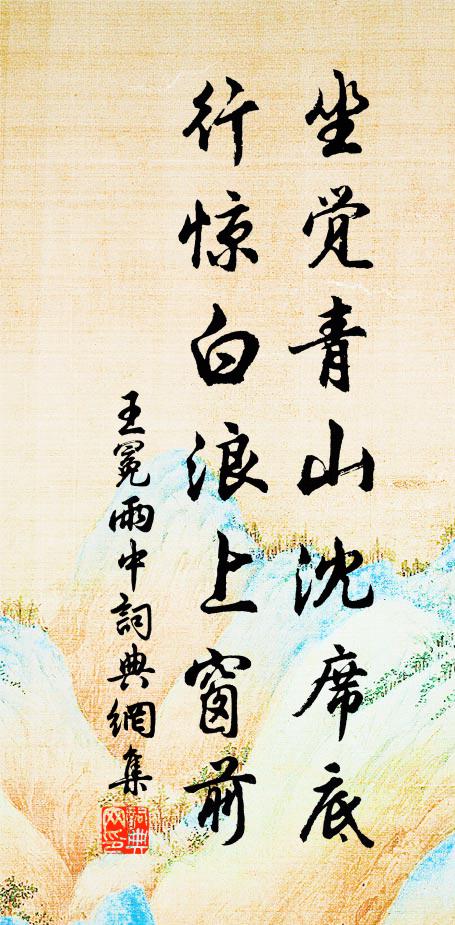 坐觉青山沈席底
行惊白浪上窗前
王冕雨中詞典網集
詞典